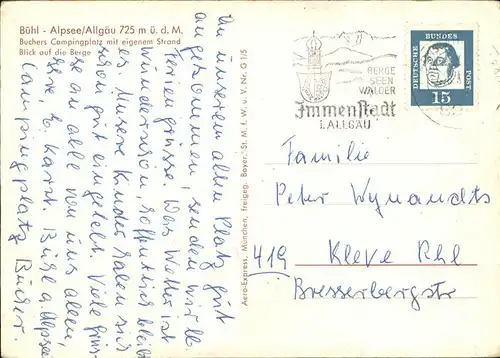 Bühl - Alpsee/Allgäu 725 m ü. d. M.
Buchers Campingplatz mit eigenem Strand
Blick auf die Berge
An unserem alten Platz gut
angekommen, senden wir lb.
Feriengrüsse. Das Wetter ist
wunderschön, hoffentlich bleibt
es. Unsere Kinder haben sich
schon gut eingelebt. Viele Grüs-
se an alle von uns allen,
Bühl a. Alpsee
Campingplatz Bucher.
Aero-Express, München, Freigeg. Bayer. St. M. f. W. u. V. Nr. G 1/5
BERGE
SEEN
WÄLDER
Immenstadt
I. ALLGÄU
DEUTSCHE BUNDESPOST
15
Familie
Peter Wynandts
419 Kleve Rhl
Bresserbergstr